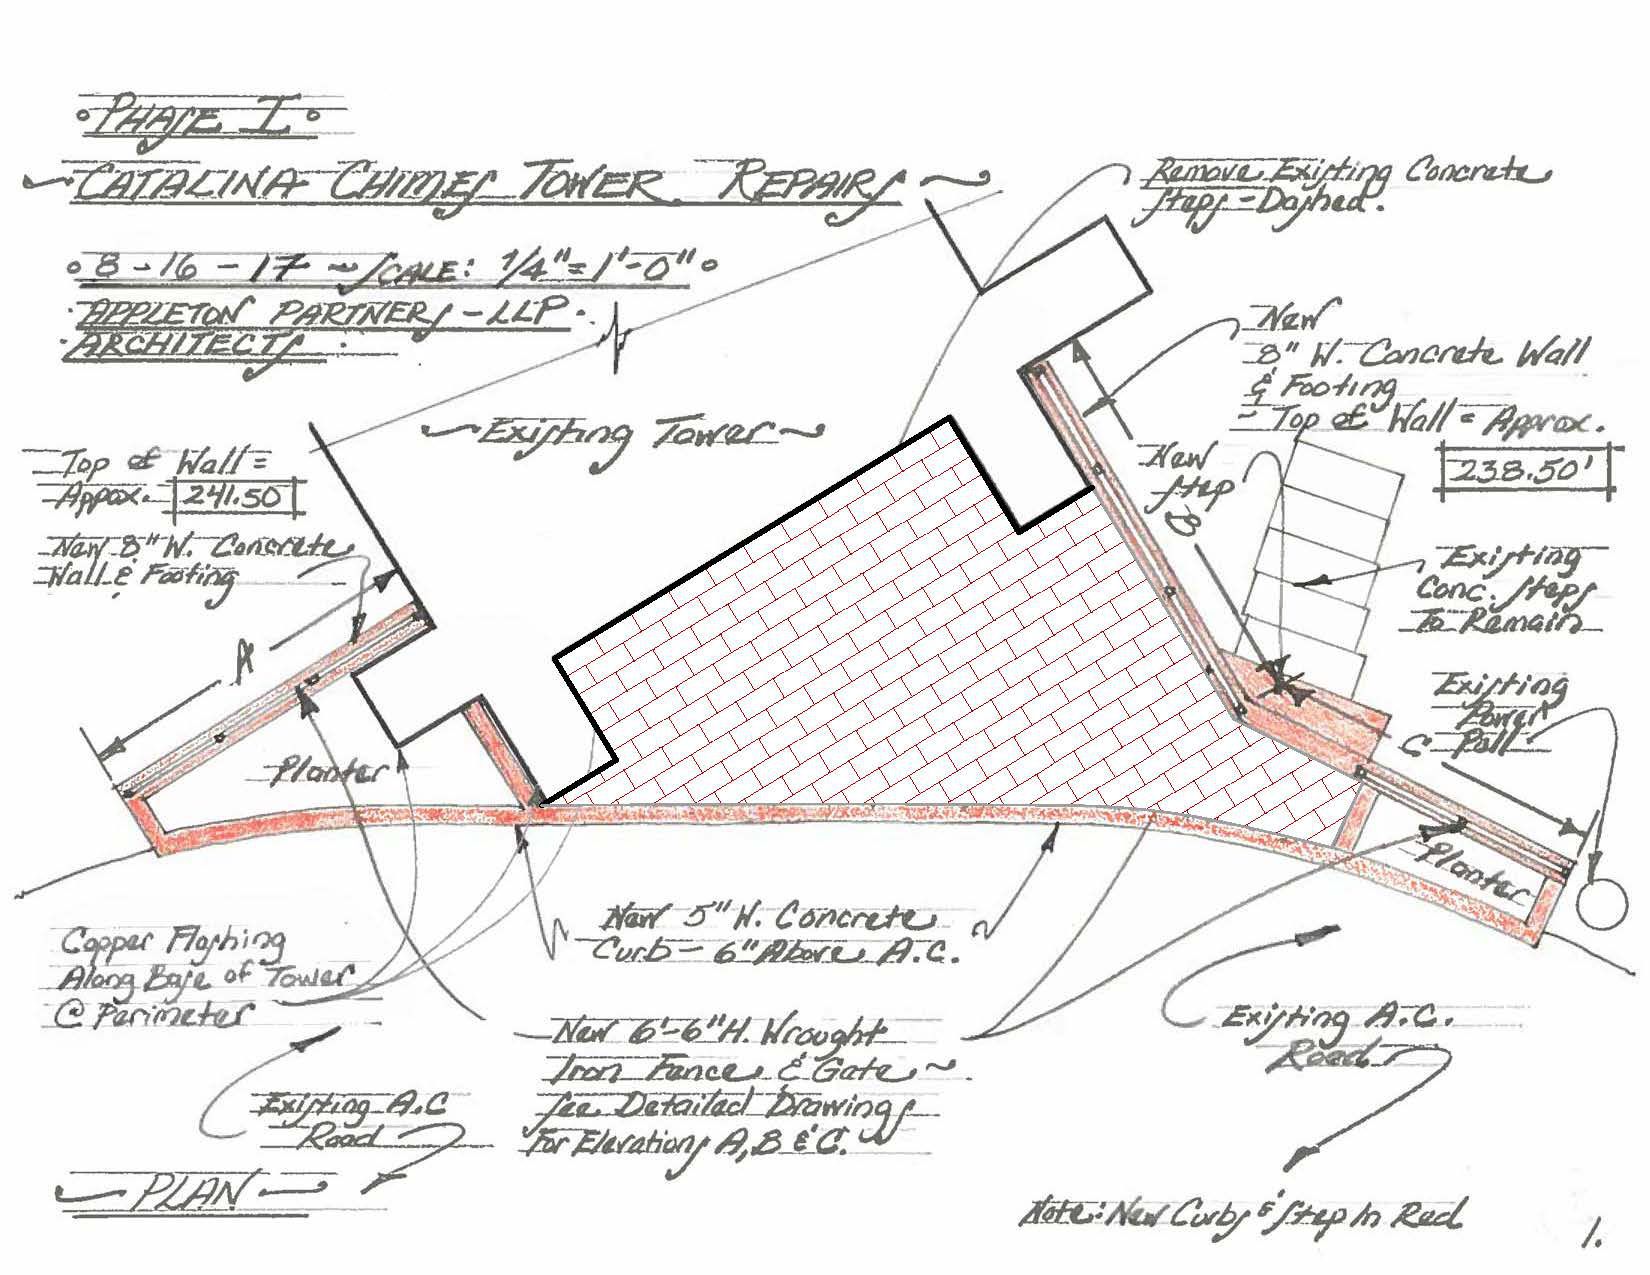 PHASE I
CATALINA CHIMES TOWER REPAIRS
8-16-17 ~ SCALE: 1/4" = 1'-0"
APPLETON PARTNERS - LLP
ARCHITECTS
Remove Existing Concrete
Steps - Dashed.
New
8" W. Concrete Wall
& Footing
- Top of Wall = Approx.
238.50'
~ Existing Tower ~
Top of Wall =
Appox. 241.50
New 8" W. Concrete
Wall & Footing
New
Step
A
B
C
Existing
Conc. Steps
To Remain
Existing
Power
Poll
Planter
Planter
New 5" W. Concrete
Curb - 6" Above A.C.
Copper Flashing
Along Base of Tower
@ Perimeter
New 6'-6" H. Wrought
Iron Fence & Gate ~
See Detailed Drawings
For Elevations A, B & C.
Existing A.C.
Road
Existing A.C
Road
PLAN
Note: New Curbs & Step In Red
1.